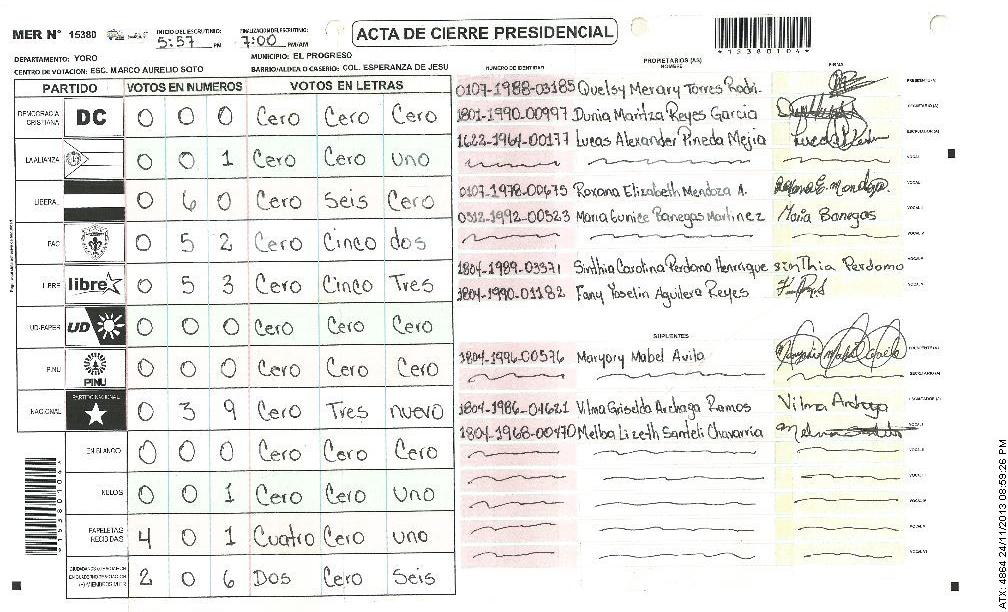 MER N° 15380
INICIO DEL ESCRUTINIO: 5:57 PM
FINALIZACION DEL ESCRUTINIO: 7:00 PM/AM
ACTA DE CIERRE PRESIDENCIAL
15380104
DEPARTAMENTO: YORO
MUNICIPIO: EL PROGRESO
CENTRO DE VOTACION: ESC. MARCO AURELIO SOTO
BARRIO/ALDEA O CASERIO: COL. ESPERANZA DE JESU
PARTIDO VOTOS EN NUMEROS VOTOS EN LETRAS
DEMOCRACIA CRISTIANA DC 0 0 0 Cero Cero Cero
LA ALIANZA 0 0 1 Cero Cero uno
LIBERAL 0 6 0 Cero Seis Cero
PAC 0 5 2 Cero Cinco dos
LIBRE libre 0 5 3 Cero Cinco Tres
UD-FAPER UD 0 0 0 Cero Cero Cero
PINU PINU 0 0 0 Cero Cero Cero
NACIONAL PARTIDO NACIONAL 0 3 9 Cero Tres nuevo
EN BLANCO 0 0 0 Cero Cero Cero
NULOS 0 0 1 Cero Cero uno
PAPELETAS RECIBIDAS 4 0 1 Cuatro Cero uno
2 0 6 Dos Cero Seis
NUMERO DE IDENTIDAD PROPIETARIOS (AS) NOMBRE FIRMA
0107-1988-03185 Quelsy Merary Torres Rodri. PRESIDENTE(A)
1801-1990-00997 Dunia Maritza Reyes Garcia SECRETARIO(A)
1622-1964-00177 Lucas Alexander Pineda Mejia ESCRUTADOR(A)
VOCAL I
0107-1978-00675 Roxana Elizabeth Mendoza A. Roxana E. Mendoza. VOCAL
0512-1992-00523 Maria Eunice Banegas Martinez Maria Banegas VOCAL
VOCAL
1804-1989-03371 Sinthia Carolina Perdomo Henrique sinThia Perdomo VOCAL
1804-1990-01182 Fany Yoselin Aguilera Reyes VOCAL
SUPLENTES
1804-1996-00576 Maryory Mabel Avila PRESIDENTE(A)
SECRETARIO(A)
1804-1986-04621 Vilma Griselda Archaga Ramos Vilma Archaga ESCRUTADOR(A)
1804-1968-00470 Melba Lizeth Santeli Chavarria VOCAL
15380104
ATX: 4864 24/11/2013 08:59:26 PM